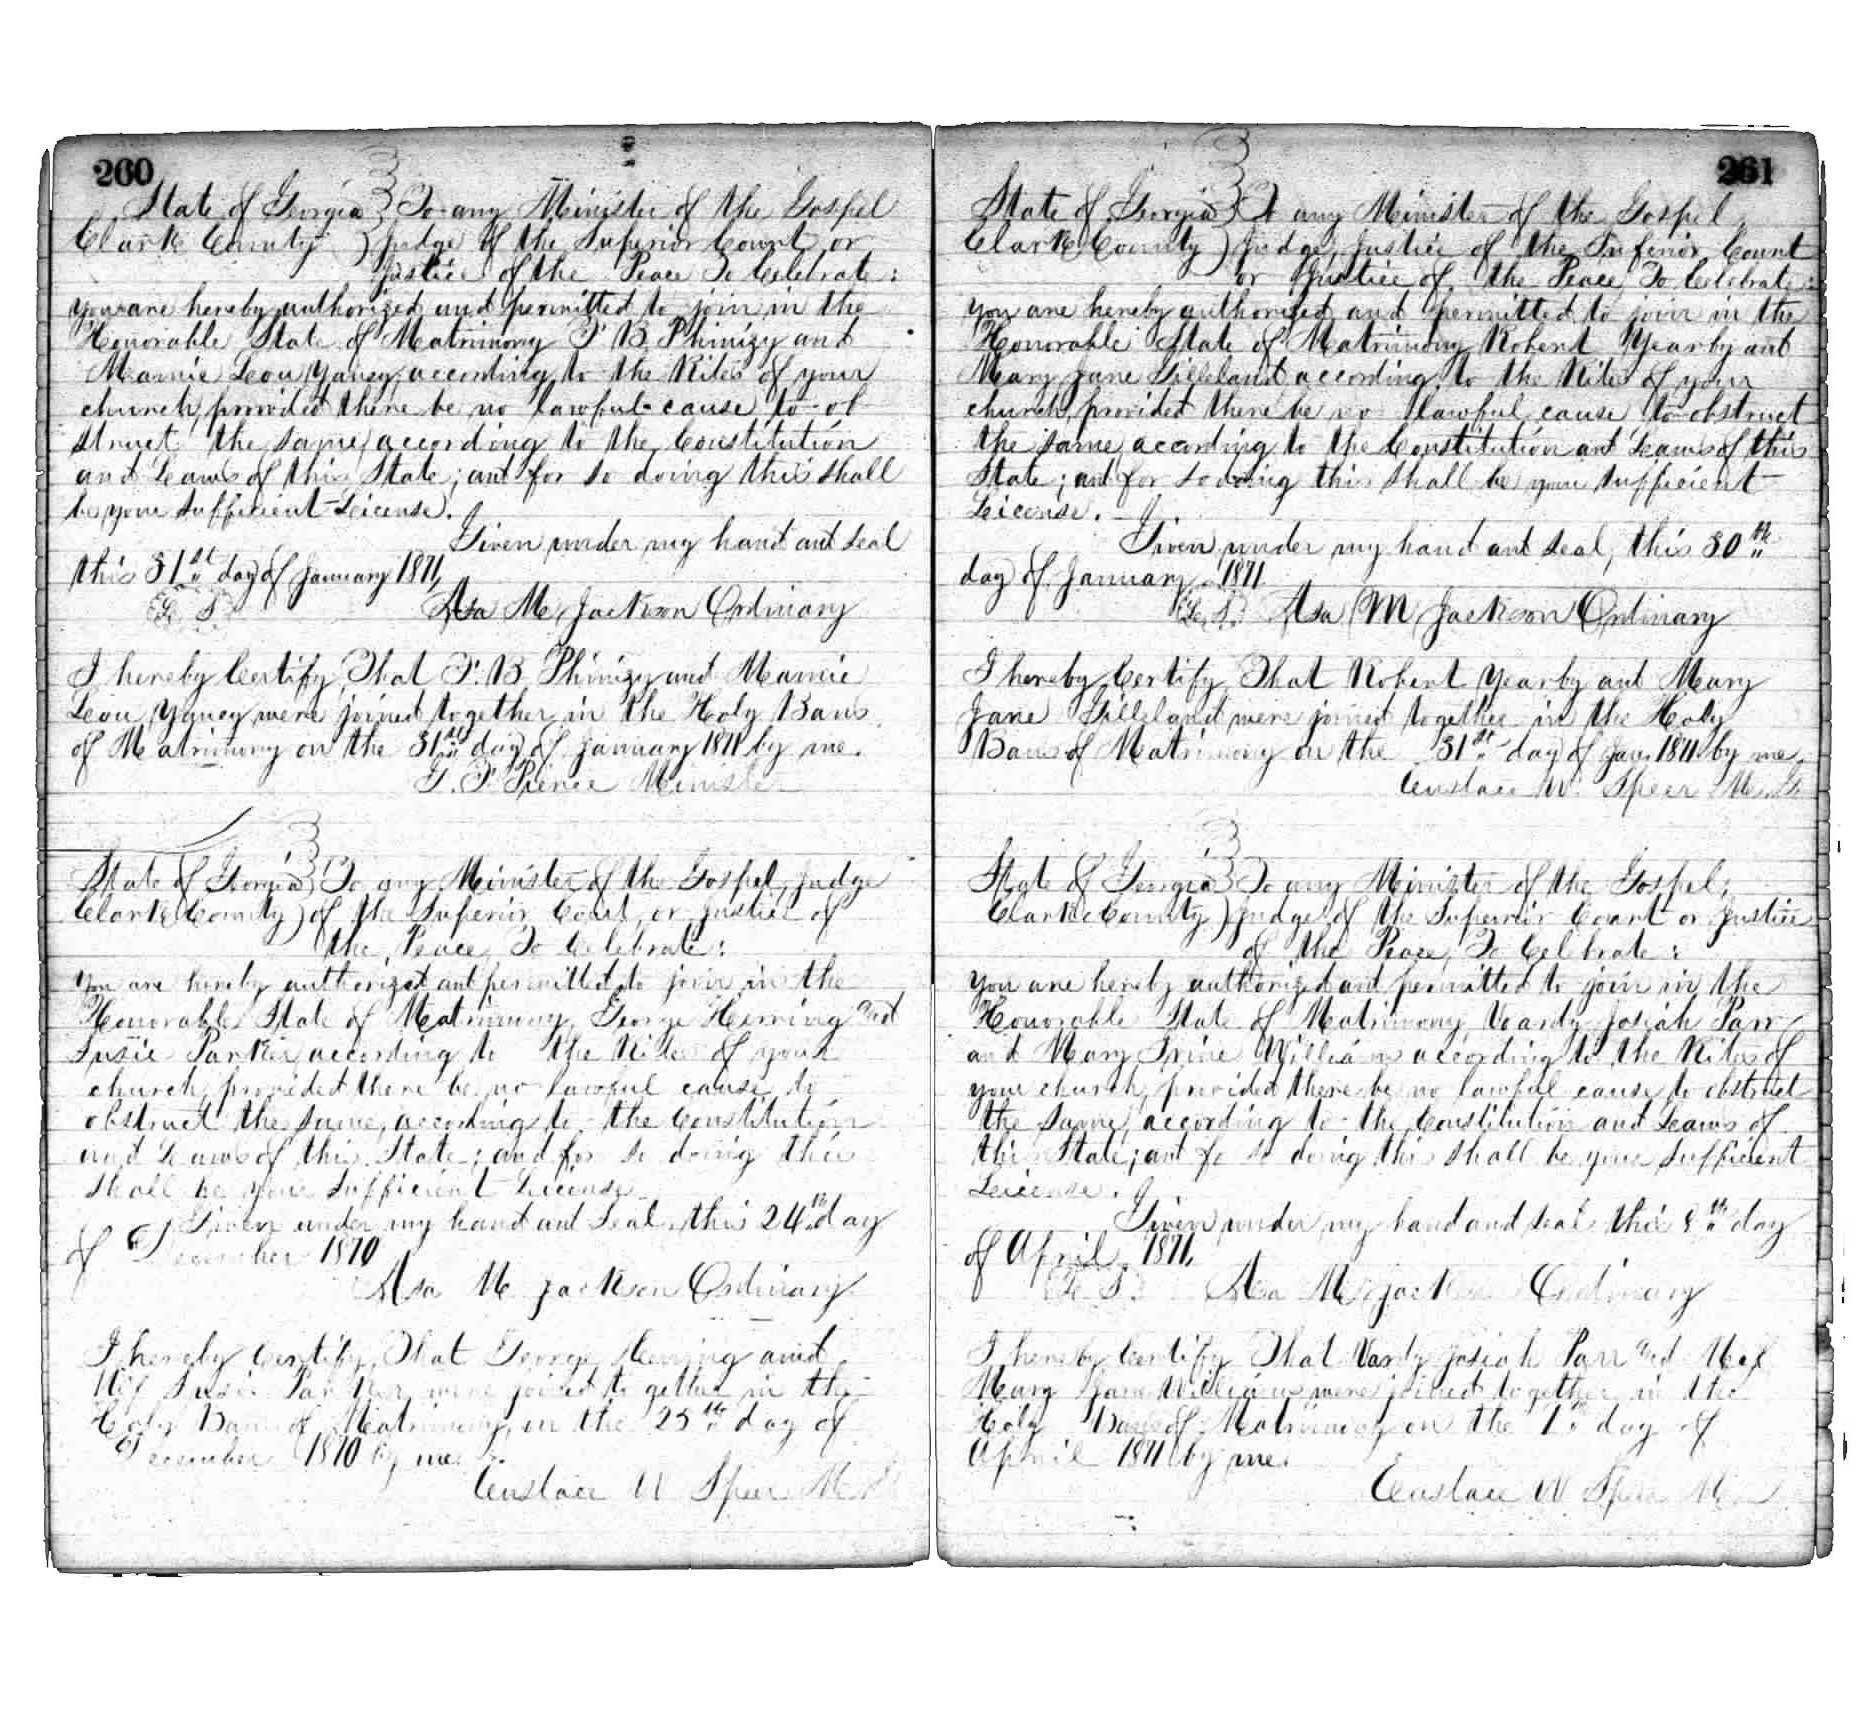 260
State of Georgia } To any Minister of the Gospel
Clark County } Judge of the Superior Court, or
Justice of the Peace To Celebrate:
You are hereby authorized and permitted to join in the
Honorable State of Matrimony F. B. Phinizy and
Mamie Lou Yancy, according to the Rites of your
church, provided there be no lawful cause to ob
struct the same, according to the Constitution
and Laws of this State; and for so doing this shall
be your sufficient License.
Given under my hand and seal
this 31st day of January 1871,
L. S. Asa M. Jackson Ordinary
I hereby Certify, That F. B. Phinizy and Mamie
Lou Yancy were joined together in the Holy Bans
of Matrimony on the 31st day of January 1871 by me.
G. F. Pierce Minister
State of Georgia } To any Minister of the Gospel, Judge
Clark County } of the Superior Court, or Justice of
the Peace, To Celebrate:
You are hereby authorized and permitted to join in the
Honorable State of Matrimony, George Herring and
Susie Parker, according to the Rites of your
church, provided there be no lawful cause to
obstruct the same, according to the Constitution
and Laws of this State; and for so doing this
shall be your sufficient License
Given under my hand and Seal, this 24th day
of December 1870
Asa M Jackson Ordinary
I hereby Certify, That George Herring and
Susie Parker were joined together in the
Holy Bans of Matrimony, on the 25th day of
December 1870 by me.
Eustace W Speer
261
State of Georgia } To any Minister of the Gospel,
Clark County } Judge, Justice of the Inferior Court
or Justice of the Peace, To Celebrate:
You are hereby authorized and permitted to join in the
Honorable State of Matrimony Robert Yearby and
Mary Jane Lilleland according to the Rites of your
church, provided there be no lawful cause to obstruct
the same, according to the Constitution and Laws of this
State; and for so doing this shall be your sufficient
License.
Given under my hand and seal, this 30th
day of January, 1871
L. S. Asa M Jackson Ordinary
I hereby Certify, That Robert Yearby and Mary
Jane Lilleland were joined together in the Holy
Bans of Matrimony on the 31st day of Jan. 1871 by me.
Eustace W. Speer
State of Georgia } To any Minister of the Gospel,
Clark County } Judge of the Superior Court or Justice
of the Peace, To Celebrate:
You are hereby authorized and permitted to join in the
Honorable State of Matrimony Vardy Josiah Parr
and Mary Irine Williams according to the Rites of
your church, provided there be no lawful cause to obstruct
the same, according to the Constitution and Laws of
this State; and for so doing this shall be your sufficient
License.
Given under my hand and seal this 8th day
of April, 1871,
L. S. Asa M. Jackson Ordinary
I hereby Certify That Vardy Josiah Parr and
Mary Williams were joined together in the
Holy Bans of Matrimony on the day of
April 1871 by me.
Eustace W Speer